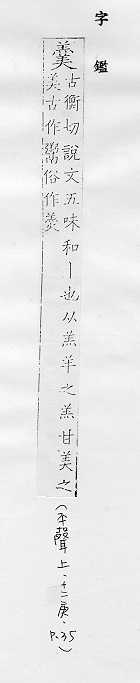 字鑑
羮
古衡切說文五味和丨也从羔羊之羔甘美之
美古作𩱧俗作羙
(平聲上.十二庚.P.35)